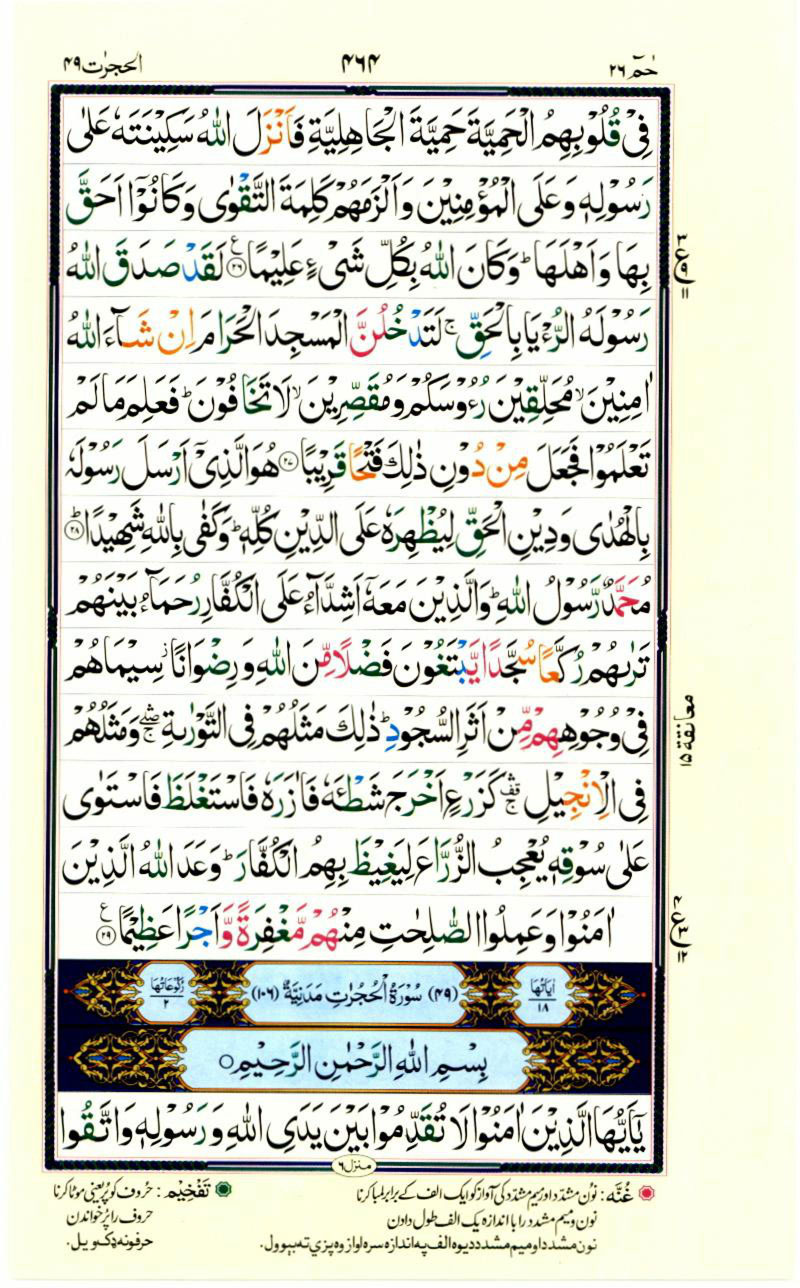 حٰمٓ ۲۶
۴۶۴
الحجرٰت ۴۹
فِیْ قُلُوْبِهِمُ الْحَمِیَّةَ حَمِیَّةَ الْجَاهِلِیَّةِ فَاَنْزَلَ اللّٰهُ سَكِیْنَتَهٗ عَلٰی
رَسُوْلِهٖ وَعَلَی الْمُؤْمِنِیْنَ وَاَلْزَمَهُمْ كَلِمَةَ التَّقْوٰی وَكَانُوْۤا اَحَقَّ
بِهَا وَاَهْلَهَا ؕ وَكَانَ اللّٰهُ بِكُلِّ شَیْءٍ عَلِیْمًا ۟ع ۲۶ لَقَدْ صَدَقَ اللّٰهُ
رَسُوْلَهُ الرُّءْیَا بِالْحَقِّ ۚ لَتَدْخُلُنَّ الْمَسْجِدَ الْحَرَامَ اِنْ شَآءَ اللّٰهُ
اٰمِنِیْنَ ۙ مُحَلِّقِیْنَ رُءُوْسَكُمْ وَمُقَصِّرِیْنَ ۙ لَا تَخَافُوْنَ ؕ فَعَلِمَ مَا لَمْ
تَعْلَمُوْا فَجَعَلَ مِنْ دُوْنِ ذٰلِكَ فَتْحًا قَرِیْبًا ۲۷ هُوَ الَّذِیْۤ اَرْسَلَ رَسُوْلَهٗ
بِالْهُدٰی وَدِیْنِ الْحَقِّ لِیُظْهِرَهٗ عَلَی الدِّیْنِ كُلِّهٖ ؕ وَكَفٰی بِاللّٰهِ شَهِیْدًا ؕ ۲۸
مُحَمَّدٌ رَّسُوْلُ اللّٰهِ ؕ وَالَّذِیْنَ مَعَهٗۤ اَشِدَّآءُ عَلَی الْكُفَّارِ رُحَمَآءُ بَیْنَهُمْ
تَرٰىهُمْ رُكَّعًا سُجَّدًا یَّبْتَغُوْنَ فَضْلًا مِّنَ اللّٰهِ وَرِضْوَانًا ؗ سِیْمَاهُمْ
فِیْ وُجُوْهِهِمْ مِّنْ اَثَرِ السُّجُوْدِ ؕ ذٰلِكَ مَثَلُهُمْ فِی التَّوْرٰىةِ ۛۖۚ وَمَثَلُهُمْ
فِی الْاِنْجِیْلِ ۛ۫ۚ كَزَرْعٍ اَخْرَجَ شَطْـَٔهٗ فَاٰزَرَهٗ فَاسْتَغْلَظَ فَاسْتَوٰی
عَلٰی سُوْقِهٖ یُعْجِبُ الزُّرَّاعَ لِیَغِیْظَ بِهِمُ الْكُفَّارَ ؕ وَعَدَ اللّٰهُ الَّذِیْنَ
اٰمَنُوْا وَعَمِلُوا الصّٰلِحٰتِ مِنْهُمْ مَّغْفِرَةً وَّاَجْرًا عَظِیْمًا ع ۲۹
اٰیَاتُهَا ۱۸
(۴۹) سُوْرَةُ الْحُجُرٰتِ مَدَنِیَّةٌ (۱۰۶)
رُكُوْعَاتُهَا ۲
بِسْمِ اللّٰهِ الرَّحْمٰنِ الرَّحِیْمِ
یٰۤاَیُّهَا الَّذِیْنَ اٰمَنُوْا لَا تُقَدِّمُوْا بَیْنَ یَدَیِ اللّٰهِ وَرَسُوْلِهٖ وَاتَّقُوا
منزل ۶
۳ ع ۹ ۱۱
معانقة ۱۵
ع ۳ ۱۲
غُنَّه : نون مشدد اور میم مشدد کی آواز کو ایک الف کے برابر لمبا کرنا
نون و میم مشدد را با اندازہ یک الف طول دادن
نون مشدد او میم مشدد دیوه الف په اندازه سره اواز وه پزې ته بېوول.
تَفْخِیْم : حروف کو پُر یعنی موٹا کرنا
حروف را پُر خواندن
حرفونه ډک ویل.